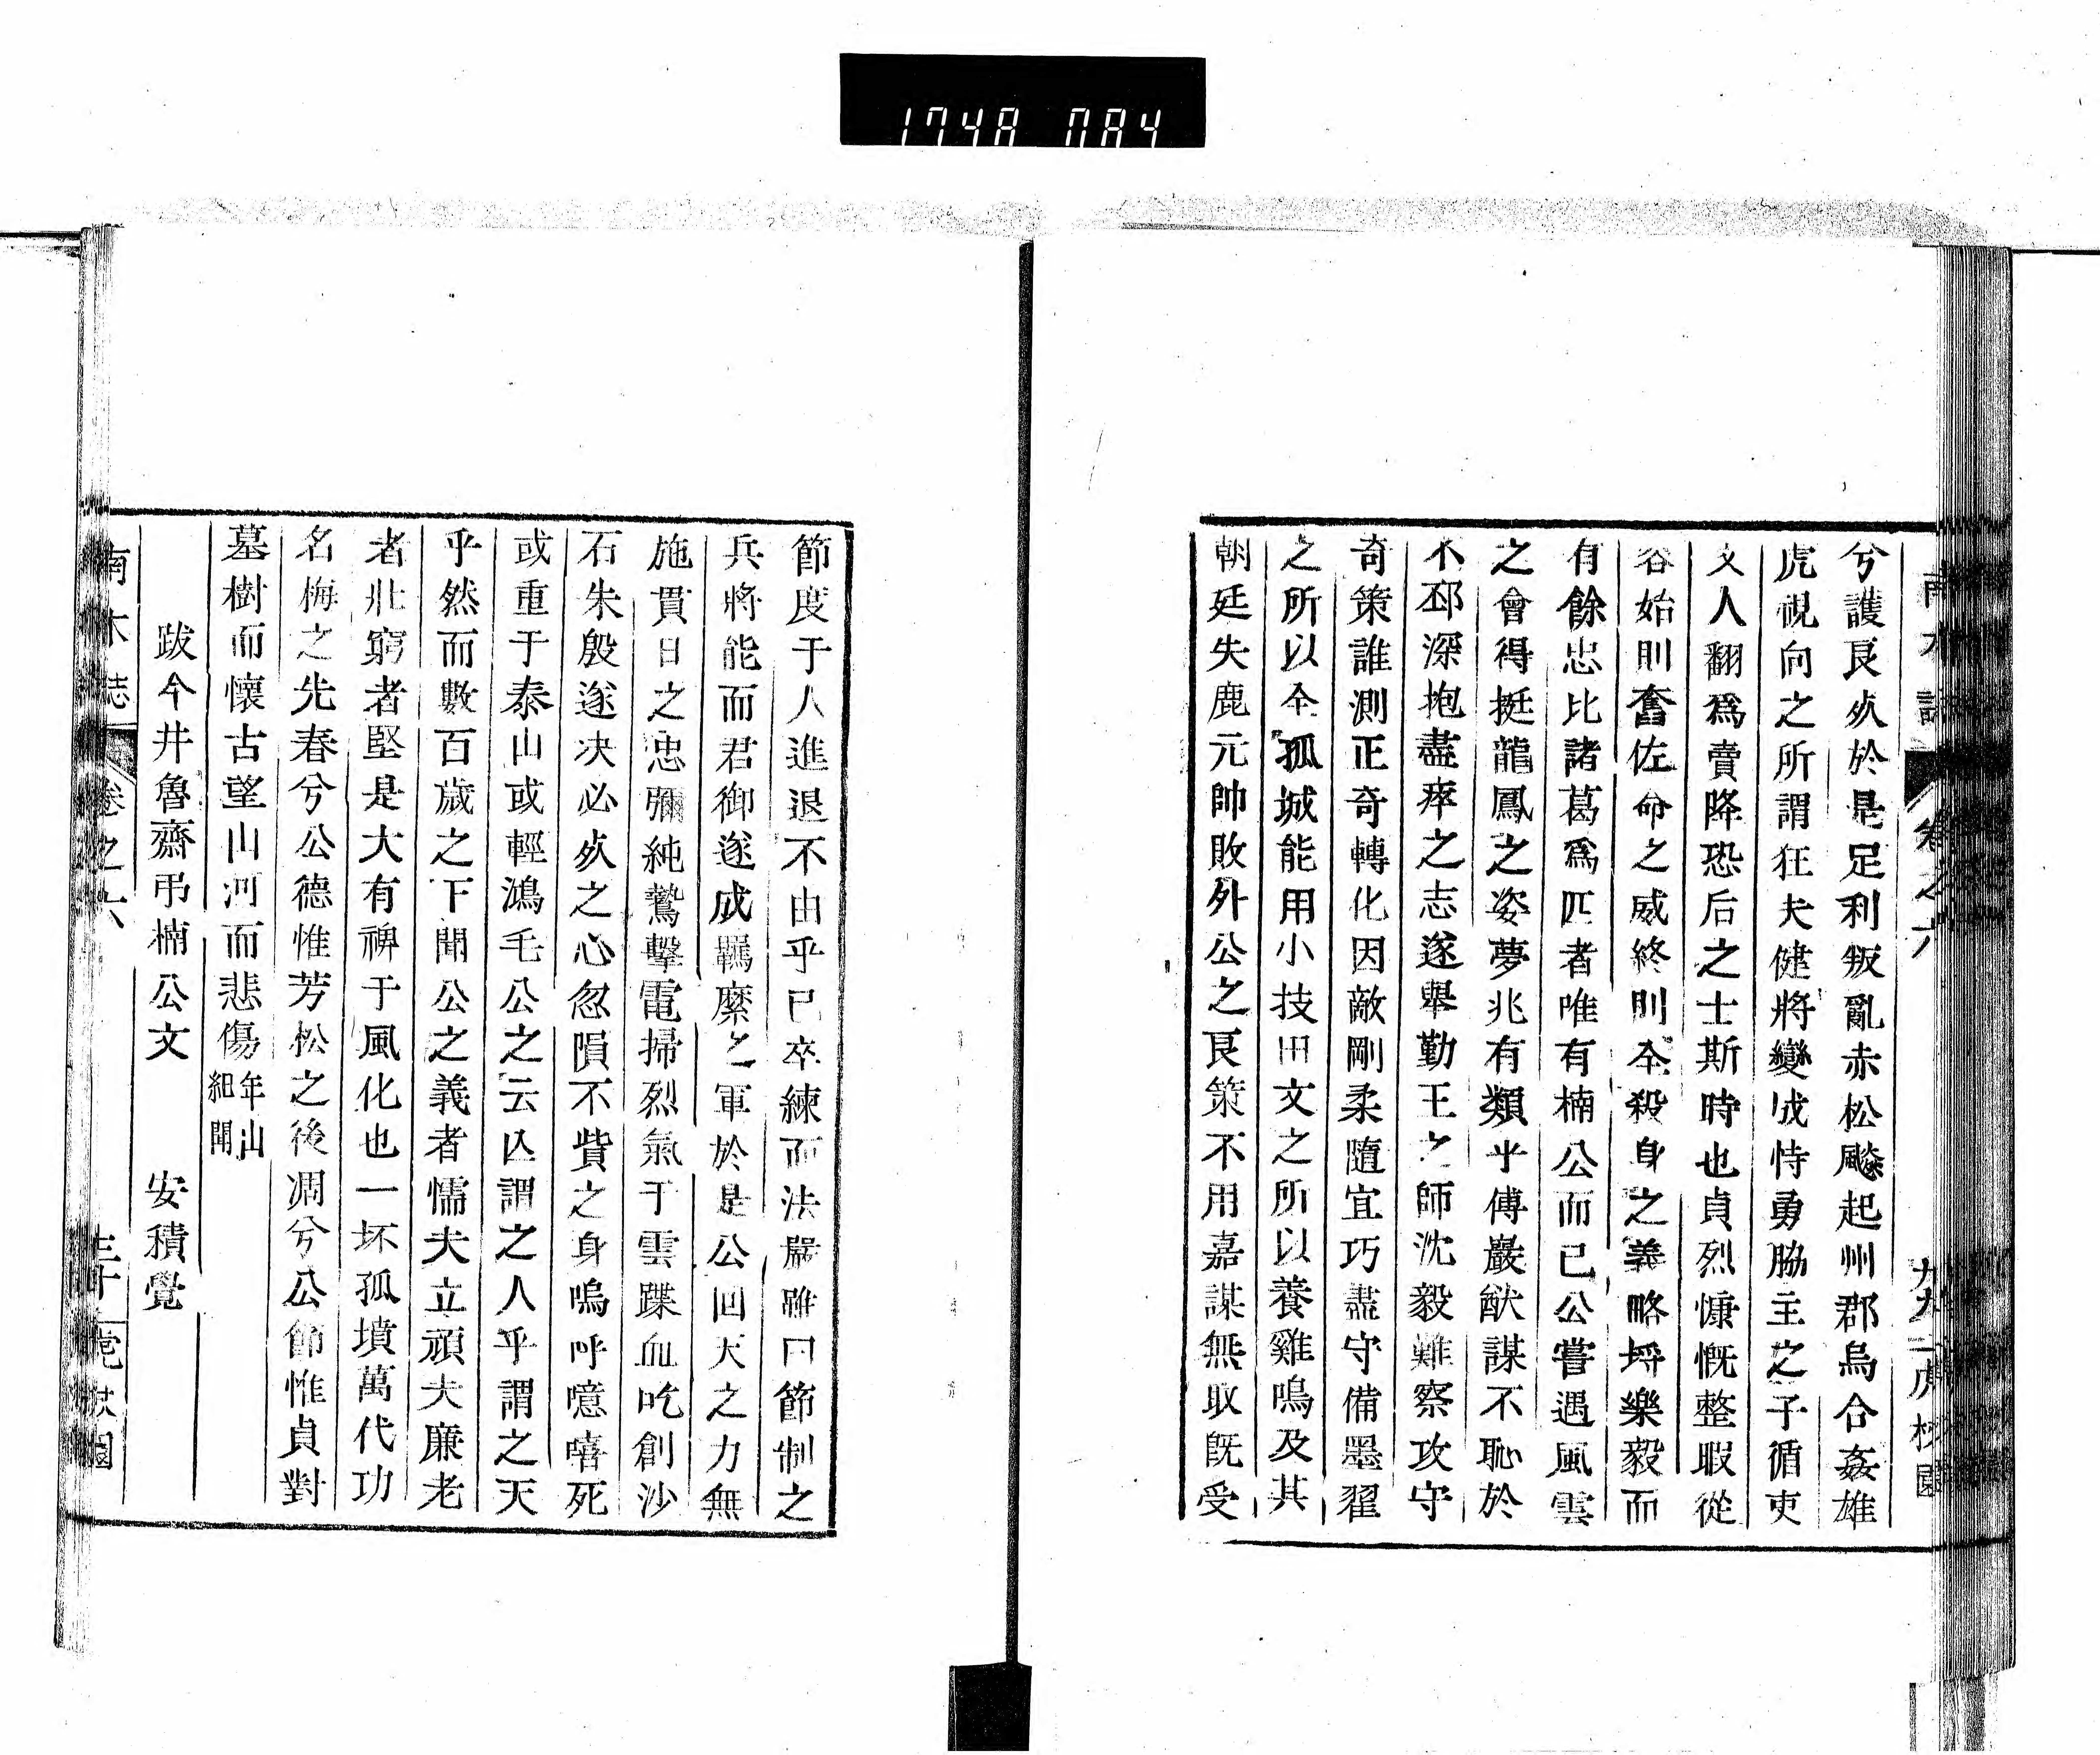 1748 084
兮護良㱙於是足利叛亂赤松颷起州郡烏合姦雄
虎視向之所謂狂夫健將變成恃勇脇主之子循吏
文人翻爲賣降恐后之士斯時也貞烈慷慨整暇從
容始則奮佐命之威終則全殺身之義略埒樂毅而
有餘忠比諸葛爲匹者唯有楠公而已公嘗遇風雲
之會得挺龍鳳之姿夢兆有類乎傅巖猷謀不恥於
不邳深抱盡瘁之志遂舉勤王之師沈毅難察攻守
奇策誰測正奇轉化因敵剛柔隨宜巧盡守備墨翟
之所以全孤城能用小技田文之所以養雞鳴及其
朝廷失鹿元帥敗外公之良策不用嘉謀無取旣受
節度于人進退不由乎已卒練而法嚴雖曰節制之
兵將能而君御遂成羈縻之軍於是公回天之力無
施貫日之忠彌純鷙擊電掃烈氣于雲蹀血吃創沙
石朱殷遂决必㱙之心忽隕不貲之身嗚呼噫嘻死
或重于泰山或輕鴻毛公之云亾謂之人乎謂之天
乎然而數百歲之下聞公之義者懦夫立頑夫廉老
者壯窮者堅是大有裨于風化也一坏孤墳萬代功
名梅之先春兮公德惟芳松之後凋兮公節惟貞對
墓樹而懷古望山河而悲傷年山紀聞
跋今井魯齋弔楠公文 安積覺
南木誌 卷之六 三十